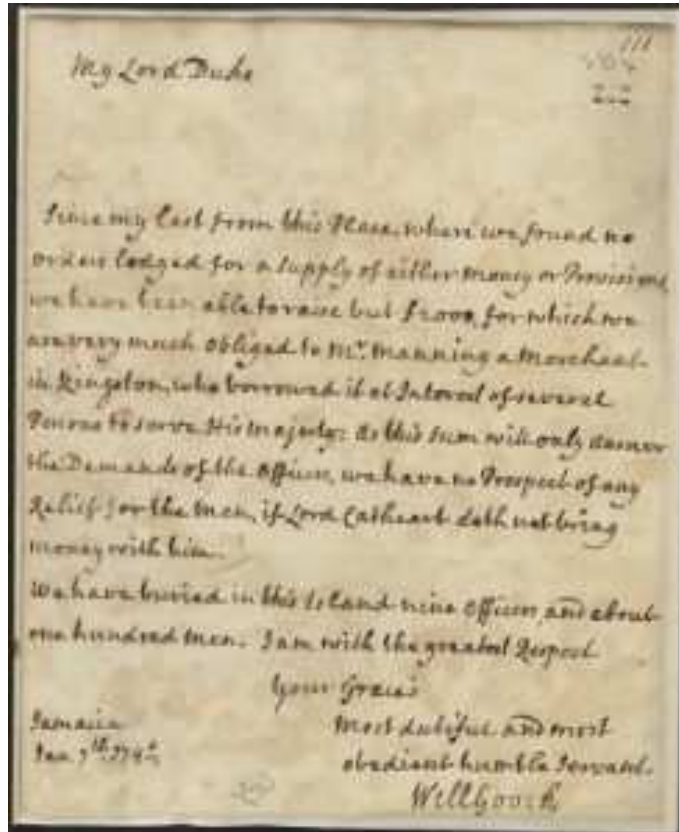 111
212
My Lord Duke
Since my last from this Place, where we found no
orders lodged for a supply of either money or Provisions,
we have been able to raise but for which we
are very much obliged to Mr. Manning a Merchant
in Kingston, who borrowed it at Interest of several
to serve His majesty: As this sum will only answer
the Demands of the Officers, we have no Prospect of any
Relief for the men, if Lord Cathcart doth not bring
money with him.
We have buried in this Island nine Officers, and about
one hundred men. I am with the greatest Respect
Your Grace's
most dutiful and most
obedient humble Servant.
Will Gooch
Jamaica
Jan. 7th